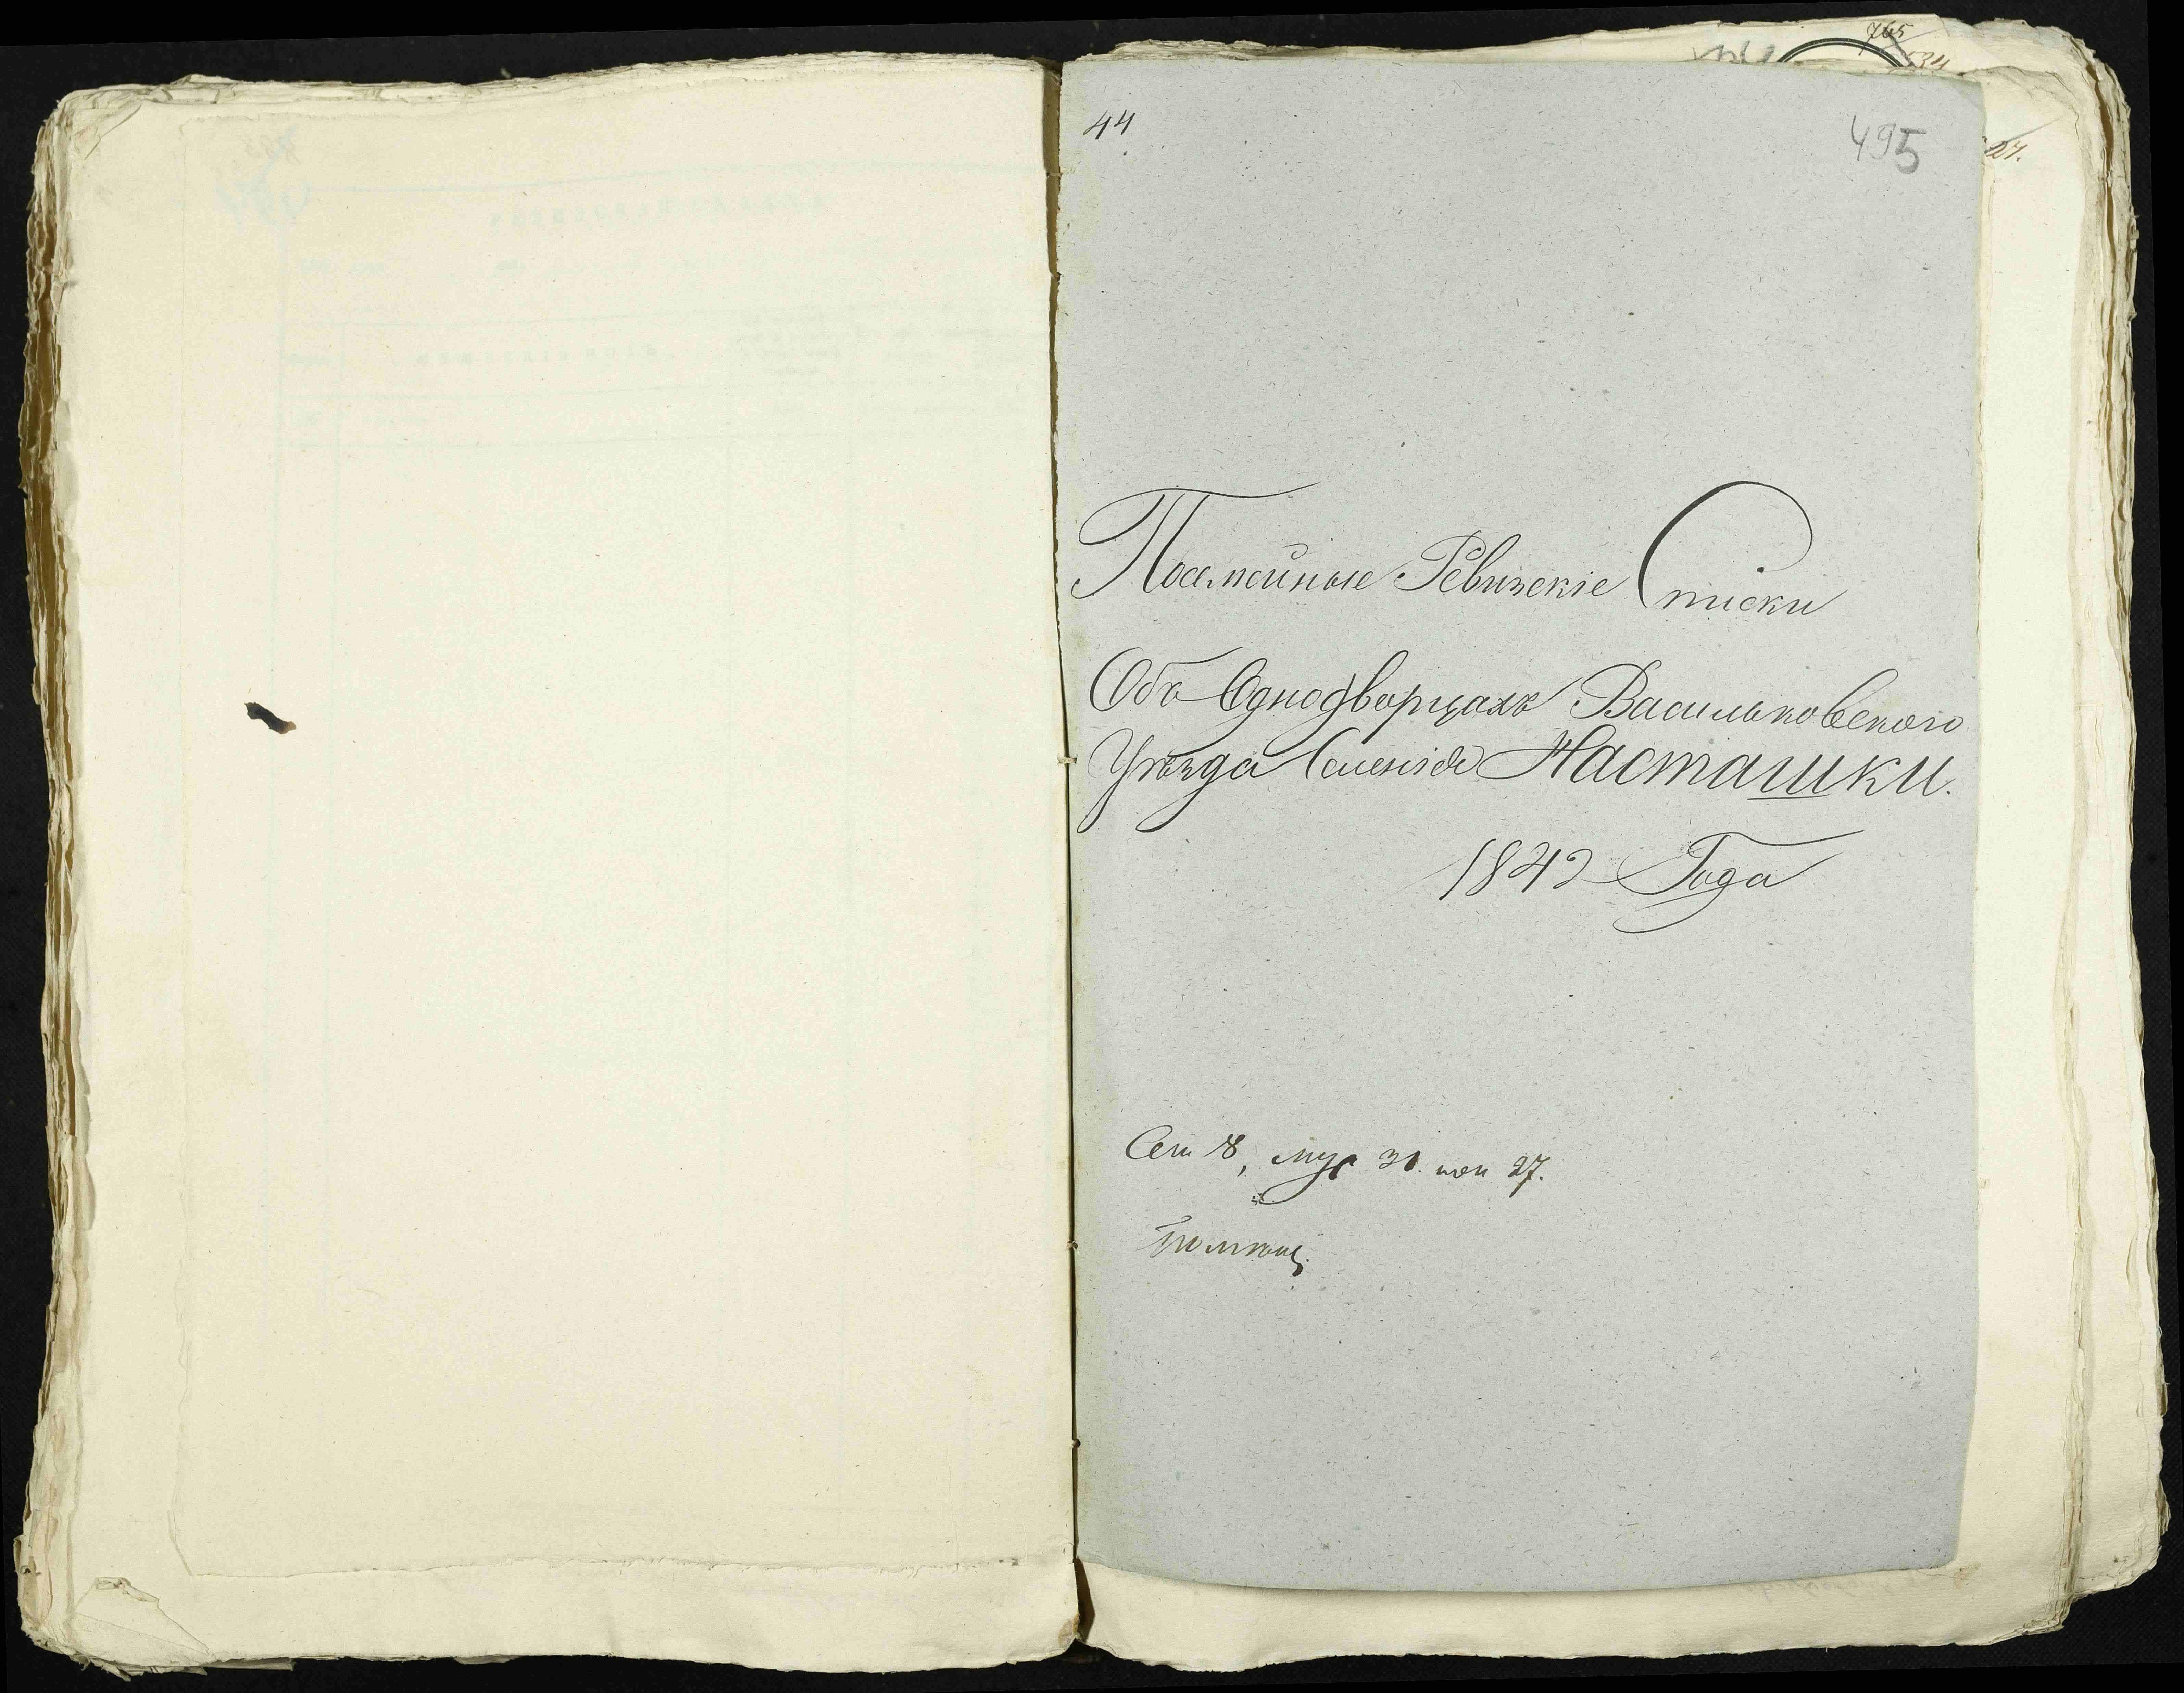 765
44
495
27.
Посемейные Ревизскіе Списки
Объ Однодворцахъ Васильковского
Уѣзда Селенія Насташки.
1842 Года
Сем 18, муж 31. жен 27.